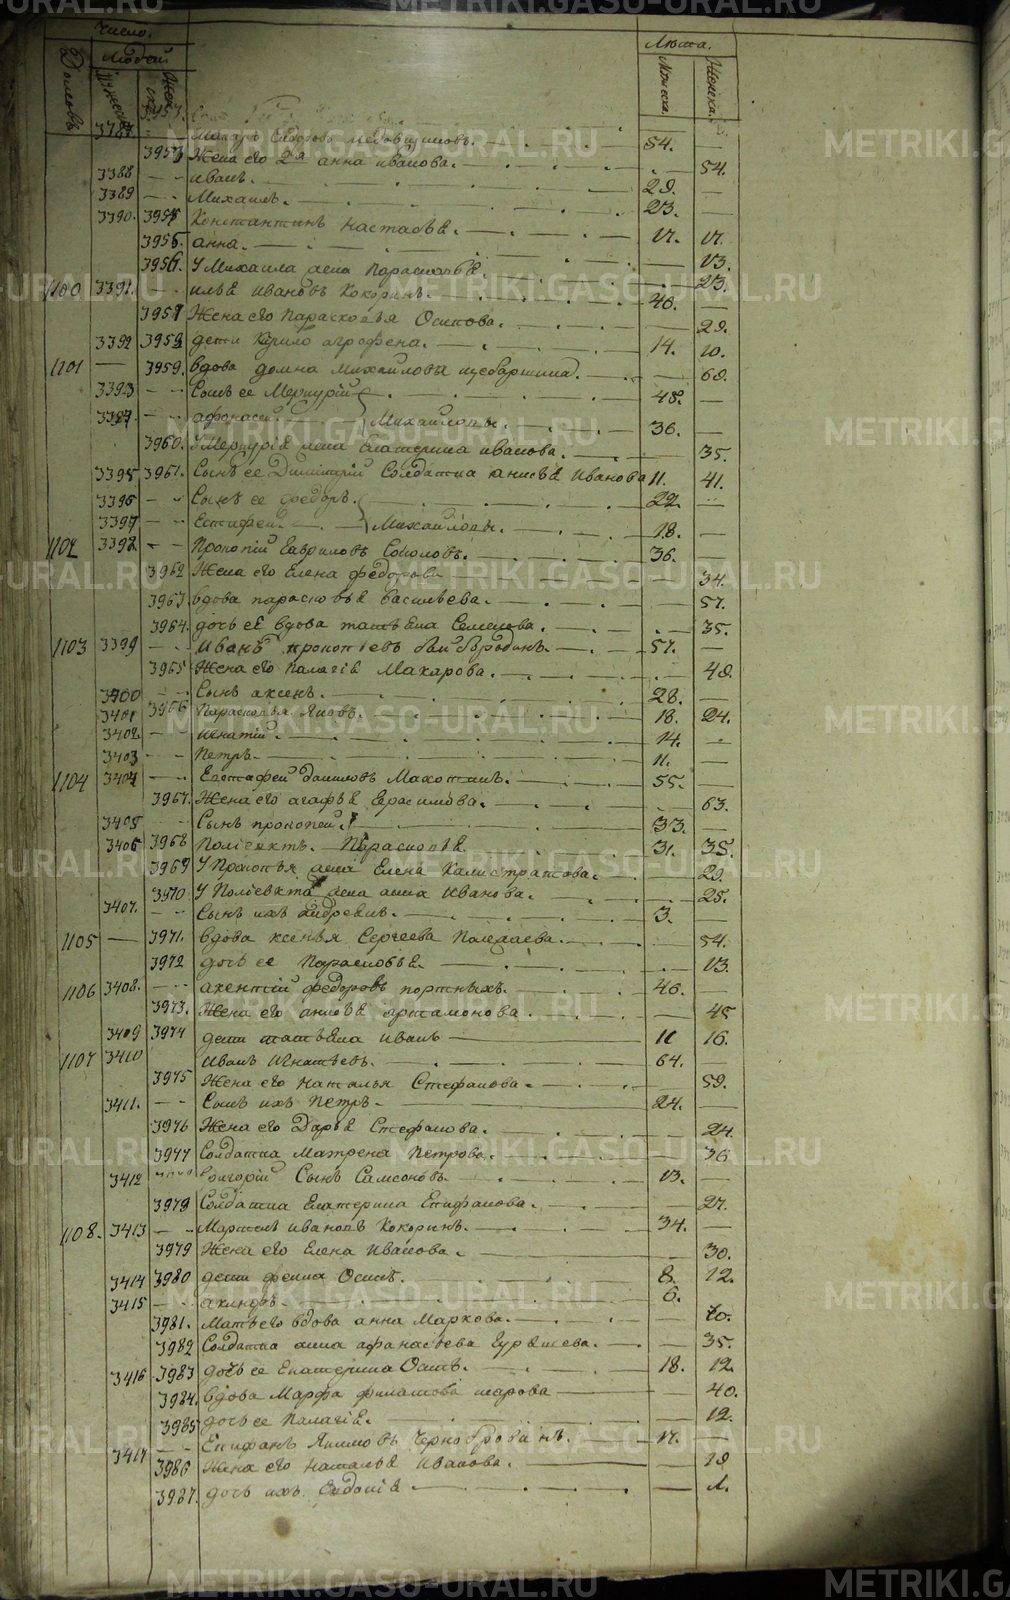 Число.
Домовъ
Людей
Мужеска
Женска
Лѣта.
Мужеска.
Женска.
3387 Макаръ Ѳедоровъ 54. —
3953 Жена его 2я анна иванова. — 54.
3388 — иванъ. 29. —
3389 — Михаилъ. 23. —
3390. 3954 Константинъ настасья. 17. 17.
3955 анна. — 13.
3956. У Михаила жена Парасковья 23.
1100 3391. — илья ивановъ Кокоринъ. 40. —
3957 Жена его Парасковья Осипова. — 29.
3392 3958 дети Кирило агрофена. 14. 10.
1101 — 3959. вдова домна михаилова — 69.
3393 — Сынъ ее Меркурий 48. —
3394 — афонасей Михаиловы. 36. —
3960. У Меркурья жена Екатерина иванова. — 35.
3395 3961. Сынъ ее Димитрий Солдатка анисья Иванова 11. 41.
3396 — Сынъ ее федоръ. 22. —
3397 — Естифей. Михаиловы. 18. —
1102 3398 — Прокопий Гавриловъ Соколовъ. 36. —
3962 Жена его Елена федорова — 34.
3963 вдова парасковья васильева. — 57.
3964. дочь её вдова татьяна Семенова. — 35.
1103 3399 — иванъ прокопьевъ 51. —
3965 Жена его Палагѣя Макарова. — 49.
3400 — Сынъ аксенъ. 28. —
3401 3966 Парасковья Яковъ. 18. 24.
3402 — игнатий. 14. —
3403 — Петръ. 11. —
1104 3404 — Евстафей даниловъ Махотинъ. 55. —
3967. Жена его агафья Герасимова. — 63.
3405 — Сынъ прокопей. 33. —
3406 3968 Полиектъ. Парасковья 31. 35.
3969 У Прокопья жена Елена Калистратова. — 29.
3970 У Полиевкта жена анна Иванова. — 25.
3407. — Сынъ ихъ андреянъ. 3. —
1105 — 3971. вдова ксенья Сергеева Полежаева. — 54.
3972 дочь ее Парасковья. — 13.
1106 3408. — акентий федоровъ портныхъ. 46. —
3973. Жена его анисья артамонова. — 45
3409 3974 дети татьяна иванъ 11 16.
1107 3410 иванъ Игнатьевъ. 64. —
3975 Жена его наталья Стефанова. — 59.
3411. — Сынъ ихъ Петръ. 24. —
3976 Жена его Дарья Стефанова. — 24.
3977 Солдатка Матрена Петрова. — 36
3412 григорий Сынъ Самсоновъ. 13. —
3978 Солдатка Екатерина Епифанова. — 27.
1108. 3413 — Мартынъ ивановъ Кокоринъ. 34. —
3979 Жена его Елена Иванова. — 30.
3414 3980 дети фекла Осипъ. 8. 12.
3415 — акинфъ. 6.
3981. Мать его вдова анна Маркова. 70.
3982 Солдатка анна афанасьева Гурьяшева. — 35.
3416 3983 дочь ее Екатерина Осипъ. 18. 12.
3984. вдова Марфа филатова шарова — 40.
3985 дочь ее Палагѣя. — 12.
3417 — Епифанъ Якимовъ Чернобровинъ. 17. —
3986 Жена его наталья Иванова. — 19
3987. дочь ихъ Евдокия — 1.
METRIKI.GASO-URAL.RU